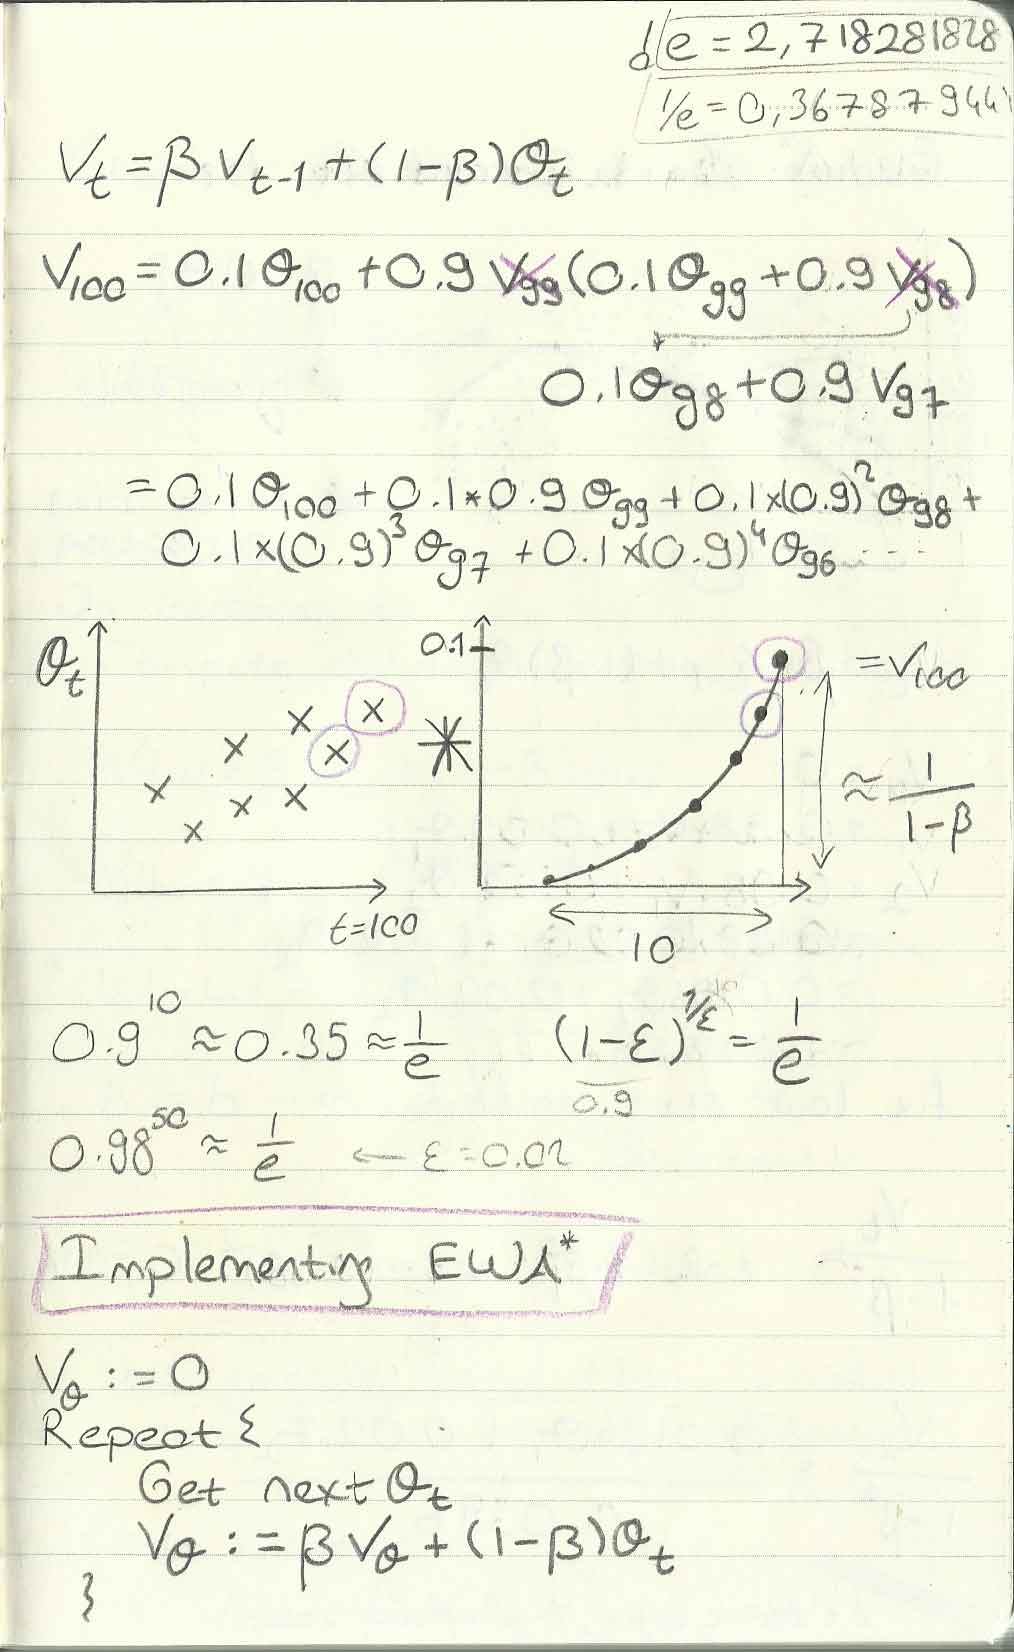 e = 2,718281828
1/e = 0,367879441
V_t = β V_{t-1} + (1-β)θ_t
V_100 = 0.1 θ_100 + 0.9 V_99 (0.1 θ_99 + 0.9 V_98)
0.1 θ_98 + 0.9 V_97
= 0.1 θ_100 + 0.1 * 0.9 θ_99 + 0.1 × (0.9)² θ_98 +
0.1 × (0.9)³ θ_97 + 0.1 × (0.9)⁴ θ_96 ....
θ_t
t=100
*
0.1
= V_100
≈ 1/(1-β)
10
0.9^10 ≈ 0.35 ≈ 1/e
(1-ε)^{1/ε} = 1/e
0.9
0.98^50 ≈ 1/e ← ε = 0.02
Implementing EWA*
V_θ := 0
Repeat {
Get next θ_t
V_θ := β V_θ + (1-β)θ_t
}